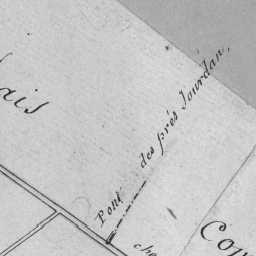 ais
Pont des prés Jourdan,
che
Cop